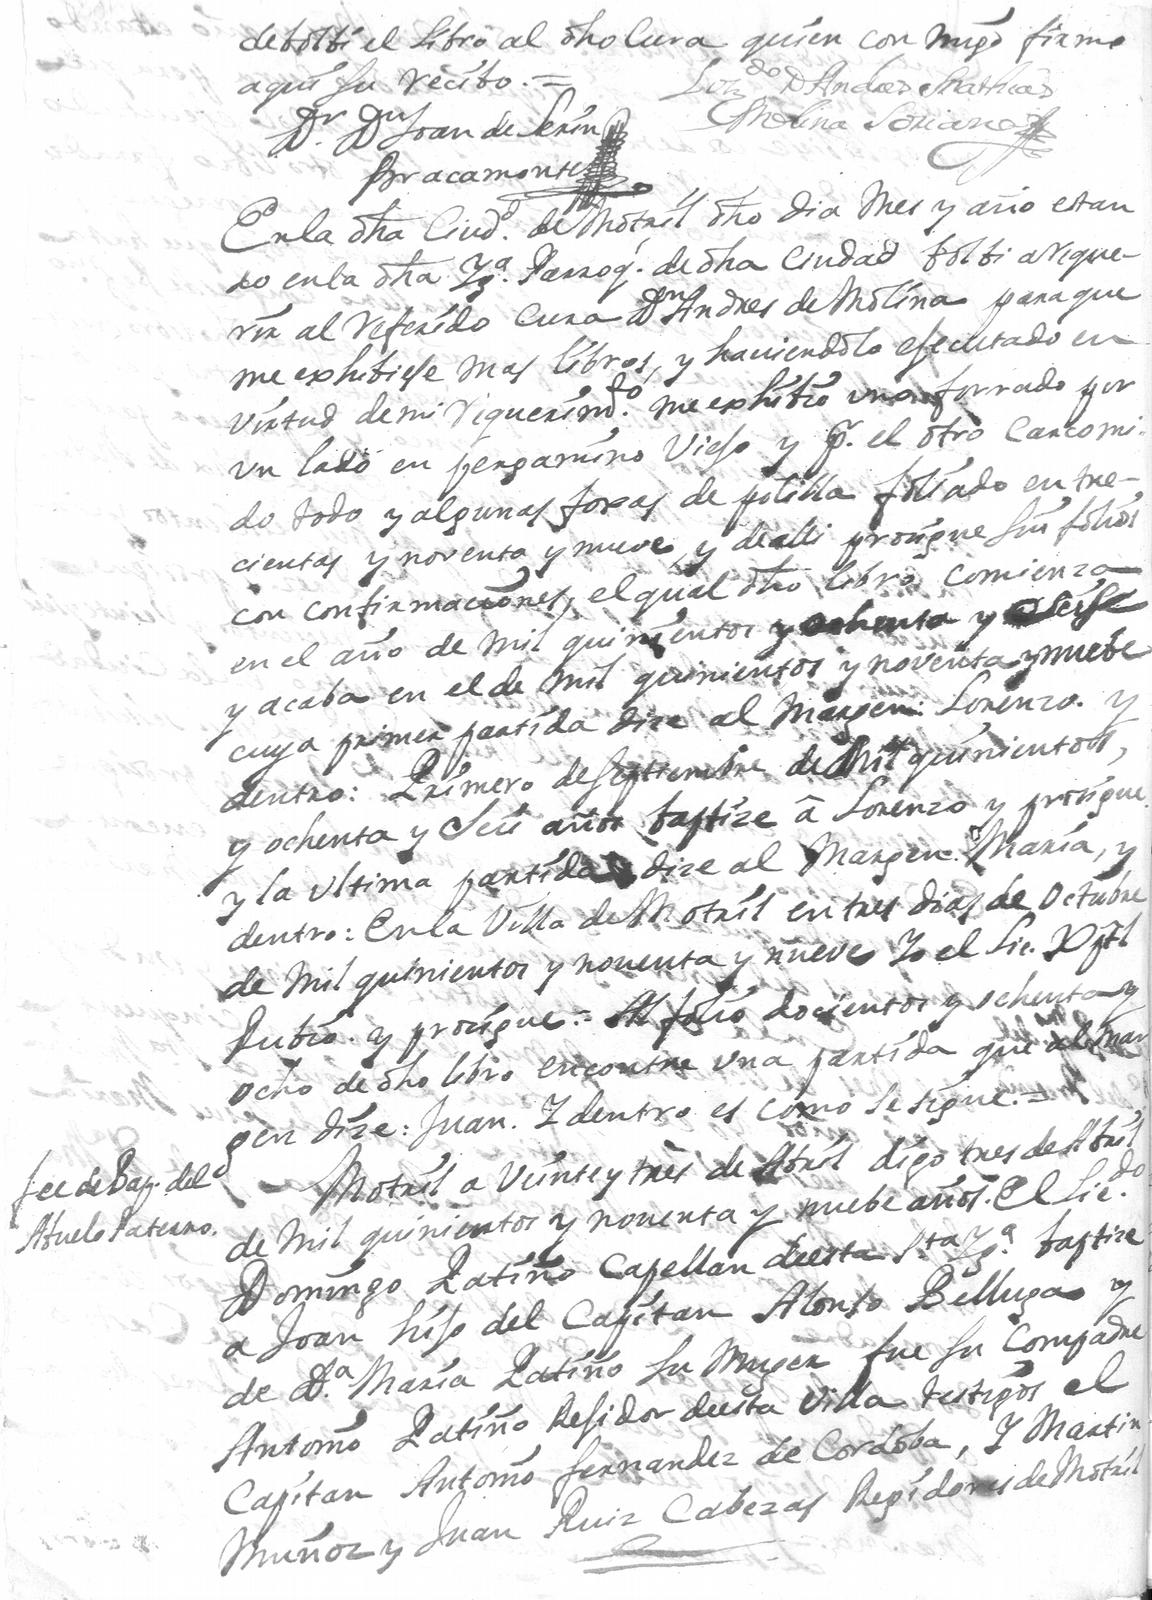 debolbi el Libro al dho Cura quien con migo firmo
aqui su recibo. =
Lizdo D Andres Mathias
Molina Soriano
Dr. Dn Joan de Lerin
Bracamonte
En la dha Ciudd. de Motril dho dia Mes y año estan
do en la dha Yga. Parroql. de dha Ciudad bolbi a reque-
rir al referido Cura Dn Andres de Molina para que
me exhibiese mas libros, y haviendolo executado en
virtud de mi requerimdo. me exhibio uno forrado por
un lado en pergamino viejo y pr. el otro carcomi-
do todo y algunas foxas de polilla foliado en tre-
cientas y noventa y nueve, y de alli prosigue sin folios
con confirmaciones, el qual dho libro comienza
en el año de mil quinientos y ochenta y seis
y acaba en el de mil quinientos y noventa y nuebe
cuya primer partida dize al Margen: Lorenzo. y
dentro: Primero de septiembre de Mil quinientos,
y ochenta y seis años baptize â Lorenzo y prosigue.
y la ultima partida dize al Margen: Maria, y
dentro: En la Villa de Motril en tres dias de Octubre
de Mil quinientos y noventa y nueve Yo el Lic. Xptl
Rubio. y prosigue. = Al folio docientos y ochenta y
ocho de dho libro encontre una partida que al Mar
gen dize: Juan. Y dentro es como se sigue. =
fee de Bap. del
Abuelo Paterno.
Motril a Veinte y tres de Abril digo tres de Abril
de Mil quinientos y noventa y nuebe años. El Licdo.
Domingo Patiño Capellan deesta Sta Yga. baptize
a Joan hijo del Capitan Alonso Belluga y
de Da. Maria Patiño su Muger fue su Compadre
Antonio Patiño Residor deesta Villa testigos el
Capitan Antonio Fernandez de Cordoba, Y Martin
Muñoz y Juan Ruiz Cabezas Regidores de Motril